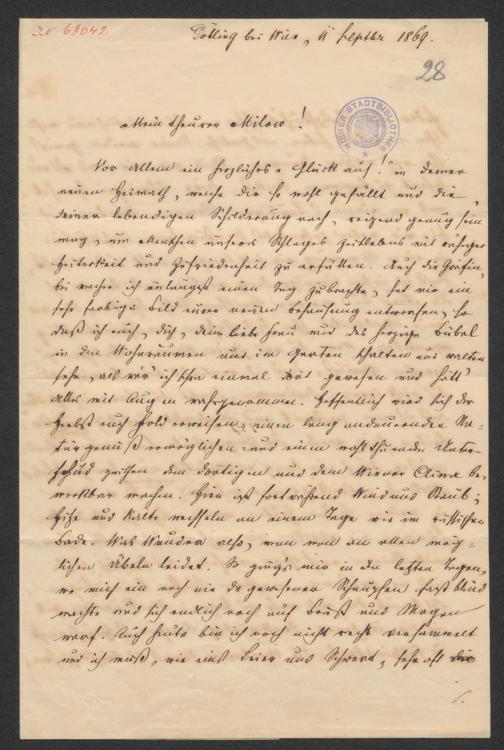 JN 68042
Döbling bei Wien, 11 Septbr 1869.
28
WIENER STADTBIBLIOTHEK
Mein theurer Milow!
Vor allem ein herzliches „Glück auf!“ in deiner
neuen Heimath, welche dir so wohl gefällt und die,
deiner lebendigen Schilderung nach, reizend genug sein
mag, um Menschen unseres Schlages zeitlebens mit ruhiger
Heiterkeit und Zufriedenheit zu erfüllen. Auch die Gräfin,
bei welcher ich unlängst einen Tag zubrachte, hat mir ein
sehr farbiges Bild eurer neuen Behausung entworfen, so
daß ich euch, dich, deine liebe Frau und das herzige Bübel
in den Wohnräumen und im Garten schalten und walten
sehe, als wär' ich schon einmal dort gewesen und hätt'
alles mit Augen wahrgenommen. Hoffentlich wird sich der
Herbst euch hold erweisen, einen lang andauernden Na-
turgenuß ermöglichen und einen wohlthuenden Unter-
schied zwischen dem dortigen und dem Wiener Clima be-
merkbar machen. Hier ist fortwährend Wind und Staub;
Hitze und Kälte wechseln an einem Tage wie im russischen
Bade. Was Wunder also, wenn man an allen mög-
lichen Übeln leidet. So ging's mir in den letzten Tagen,
wo mich ein noch nie da gewesener Schnupfen fast blind
machte und sich endlich noch auf Brust und Magen
warf. Auch heute bin ich noch nicht recht versammelt
und ich muß, wie einst Leier und Schwert, sehr oft